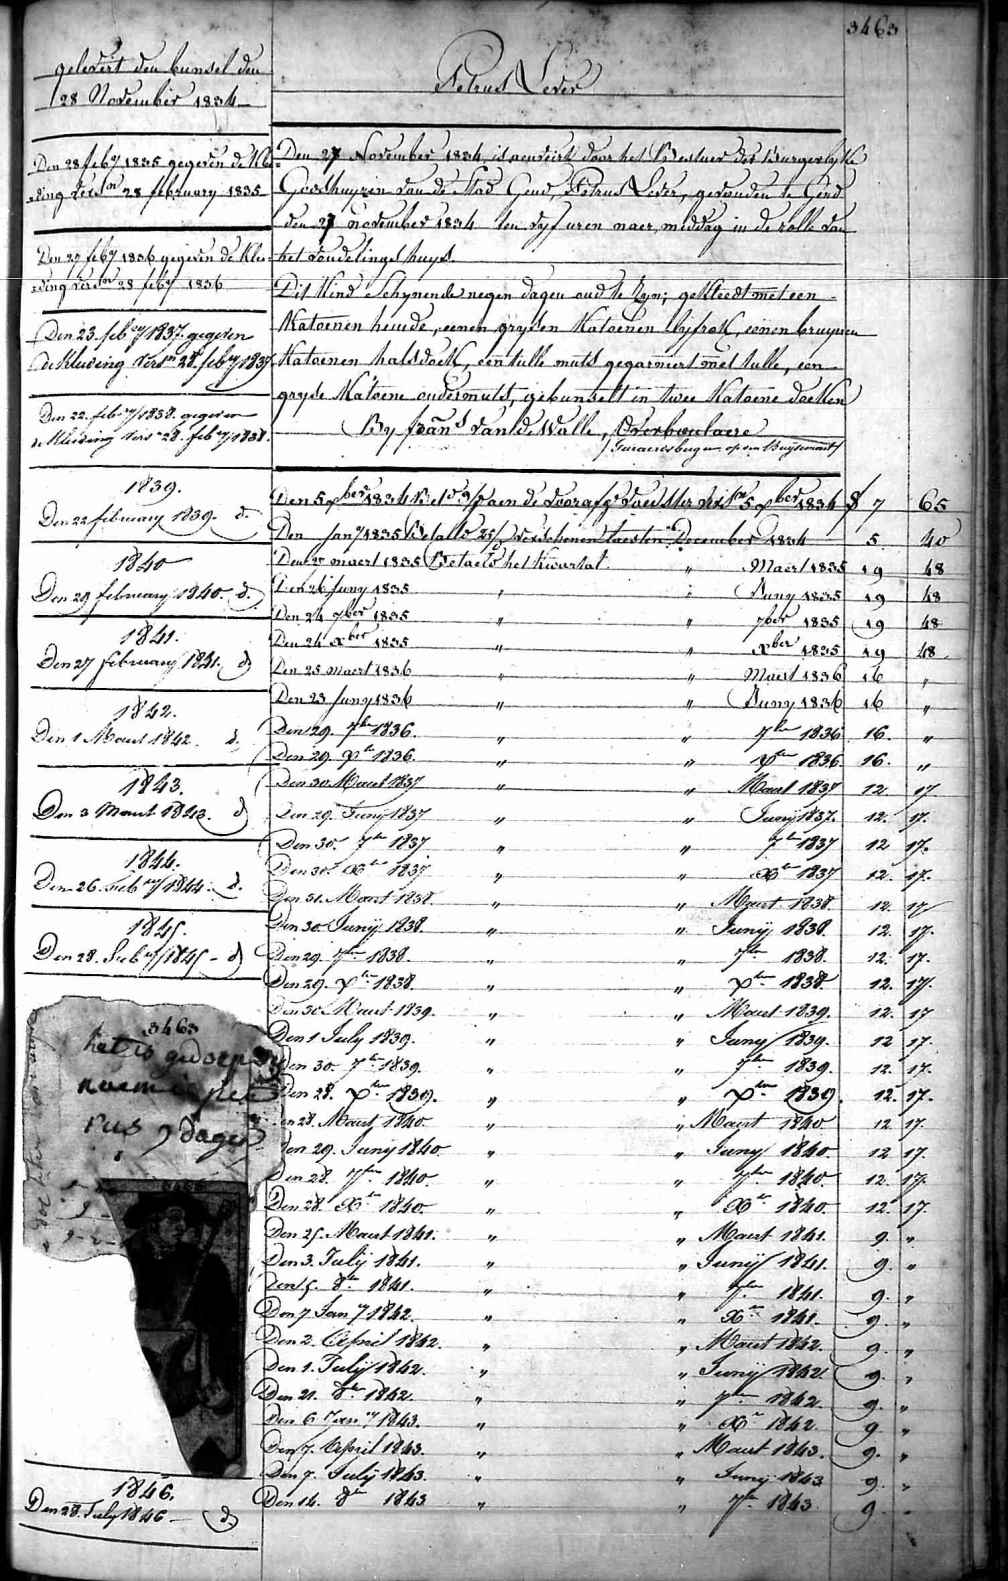 3463
gelevert den bunsel den
28 November 1834
Petrus Lever
Den 28 feby 1835 gegeven de Klee
=ding versn 28 february 1835
Den 27 feby 1836 gegeven de Klee=
=ding versn 28 feby 1836
Den 23. feby 1837. gegeven
de Kleeding versn 28. feby 1837
Den 22. feby 1838. gegeven
de Kleeding versn 28. feby 1838.
1839.
Den 22 february 1839. d.
1840
Den 29 february 1840. d.
1841.
Den 27 february 1841. d
1842.
Den 1 Maert 1842. d.
1843.
Den 3 Maert 1843. d
1844.
Den 26. Feby 1844. d.
1845.
Den 28. Feby 1845 - d
Den 27 November 1834, is aenveirt door het Bestuer der Burgerlyke
Godshuyzen van de Stad Gend, Petrus Lever, gevonden te Gend
den 27 november 1834 ten vyf uren naer middag in de rolle van
het vondelingehuys
Dit Kind Schynende negen dagen oud te zyn; gekleedt met een
Katoenen hemde, eenen gryzen Katoenen lyfrok, eenen bruynen
Katoenen halsdoek, een tulle muts gegarneert met tulle, een
gryze Katoene ondermuts, gebunselt in twee Katoene doeken
By frans van de Walle, Overboulaere
Den 5 xber 1834 aen de voedster 5 xber 1834 f 7 65
Den Jany 1835 Betaelt verschenen laesten December 1834 5 40
Den 25 maert 1835 Betaeld het Kwartal " Maert 1835 19 48
Den 26 Juny 1835 " " Juny 1835 19 48
Den 24 7ber 1835 " " 7ber 1835 19 48
Den 24 xber 1835 " " xber 1835 19 48
Den 25 maert 1836 " " Maert 1836 16 "
Den 23 Juny 1836 " " Juny 1836 16 "
Den 29. 7ber 1836. " " 7ber 1836 16. "
Den 29. xber 1836. " " xber 1836. 16. "
Den 30. Maert 1837 " " Maert 1837 12. 17
Den 29. Juny 1837 " " Juny 1837. 12. 17.
Den 30. 7ber 1837 " " 7ber 1837 12 17.
Den 30. Xber 1837 " " Xber 1837 12. 17.
Den 31. Maert 1838. " " Maert 1838. 12. 17
Den 30. Junij 1838. " " Junij 1838. 12. 17.
Den 29. 7ber 1838. " " 7ber 1838. 12. 17.
Den 29. xber 1838. " " xber 1838 12. 17.
Den 30 Maert 1839. " " Maert 1839. 12. 17
Den 1 July 1839. " " Juny 1839. 12 17.
Den 30. 7ber 1839. " " 7ber 1839. 12. 17.
Den 28. xber 1839. " " xber 1839. 12. 17.
Den 28. Maert 1840. " " Maert 1840 12 17.
Den 29. Junij 1840. " " Juny 1840. 12 17.
Den 28. 7ber 1840. " " 7ber 1840. 12. 17.
Den 28. Xber 1840. " " Xber 1840. 12. 17.
Den 25. Maert 1841. " " Maert 1841. 9. "
Den 3. Julij 1841. " " Junij 1841. 9. "
Den 5. 8ber 1841. " " 7ber 1841. 9. "
Den 7 Jany 1842. " " Xber 1841. 9. "
Den 2. April 1842. " " Maert 1842. 9. "
Den 1. July 1842. " " Junij 1842. 9. "
Den 21. 8ber 1842. " " 7ber 1842. 9. "
Den 6 Jany 1843. " " Xber 1842. 9 "
Den 7. April 1843. " " Maert 1843. 9. "
Den 7. Julij 1843. " " Junij 1843 9. "
Den 14. 8ber 1843 " " 7ber 1843. 9. "
3463
het is
rus 9 dagen
1846.
Den 28. July 1846 - d.